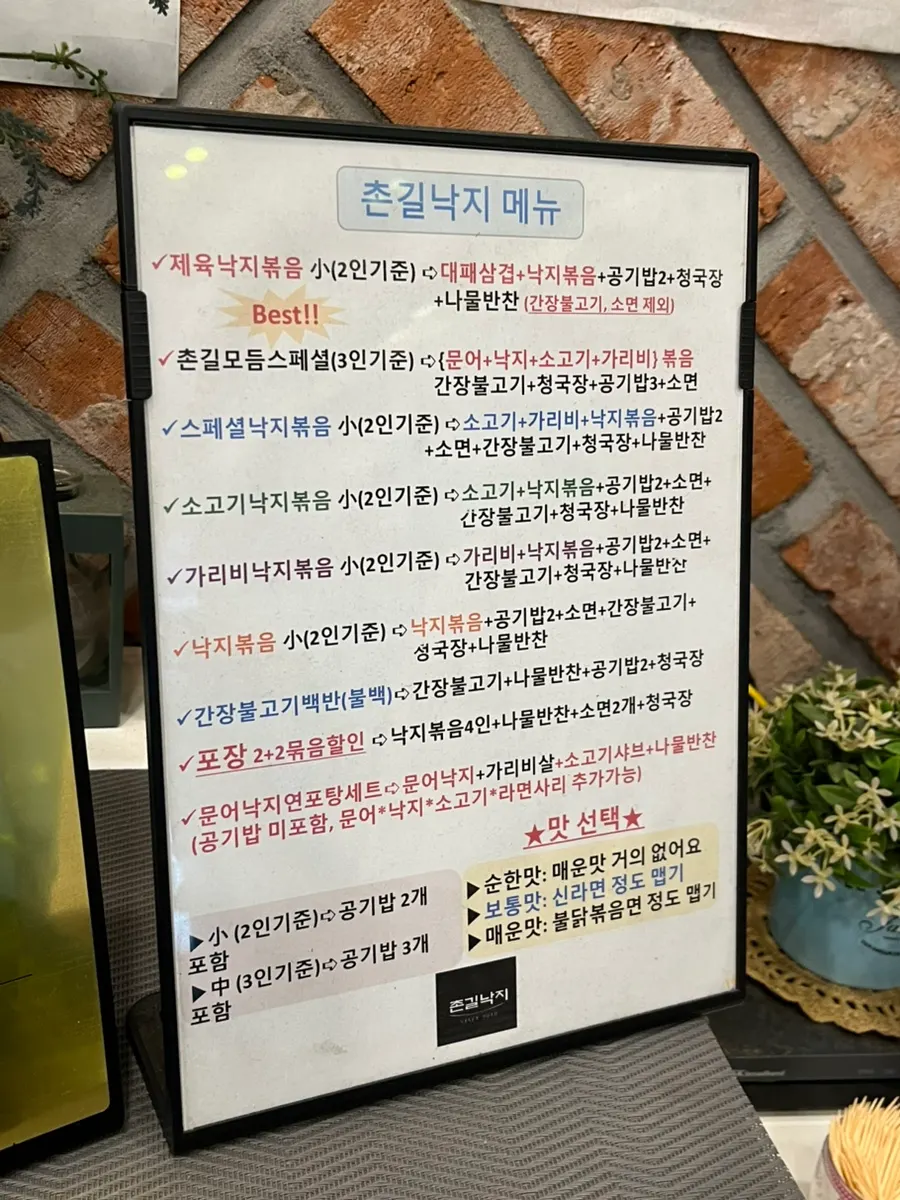 촌길낙지 메뉴
✓제육낙지볶음 小(2인기준) ➪대패삼겹+낙지볶음+공기밥2+청국장
+나물반찬 (간장불고기, 소면 제외)
Best!!
✓촌길모듬스페셜(3인기준) ➪{문어+낙지+소고기+가리비} 볶음
간장불고기+청국장+공기밥3+소면
✓스페셜낙지볶음 小(2인기준) ➪소고기+가리비+낙지볶음+공기밥2
+소면+간장불고기+청국장+나물반찬
✓소고기낙지볶음 小(2인기준) ➪소고기+낙지볶음+공기밥2+소면+
간장불고기+청국장+나물반찬
✓가리비낙지볶음 小(2인기준) ➪가리비+낙지볶음+공기밥2+소면+
간장불고기+청국장+나물반찬
✓낙지볶음 小(2인기준) ➪낙지볶음+공기밥2+소면+간장불고기+
청국장+나물반찬
✓간장불고기백반(불백)➪간장불고기+나물반찬+공기밥2+청국장
✓포장 2+2묶음할인 ➪낙지볶음4인+나물반찬+소면2개+청국장
✓문어낙지연포탕세트➪문어낙지+가리비살+소고기샤브+나물반찬
(공기밥 미포함, 문어*낙지*소고기*라면사리 추가가능)
★맛 선택★
▶순한맛: 매운맛 거의 없어요
▶보통맛: 신라면 정도 맵기
▶매운맛: 불닭볶음면 정도 맵기
▶小 (2인기준)➪공기밥 2개
포함
▶中 (3인기준)➪공기밥 3개
포함
촌길낙지